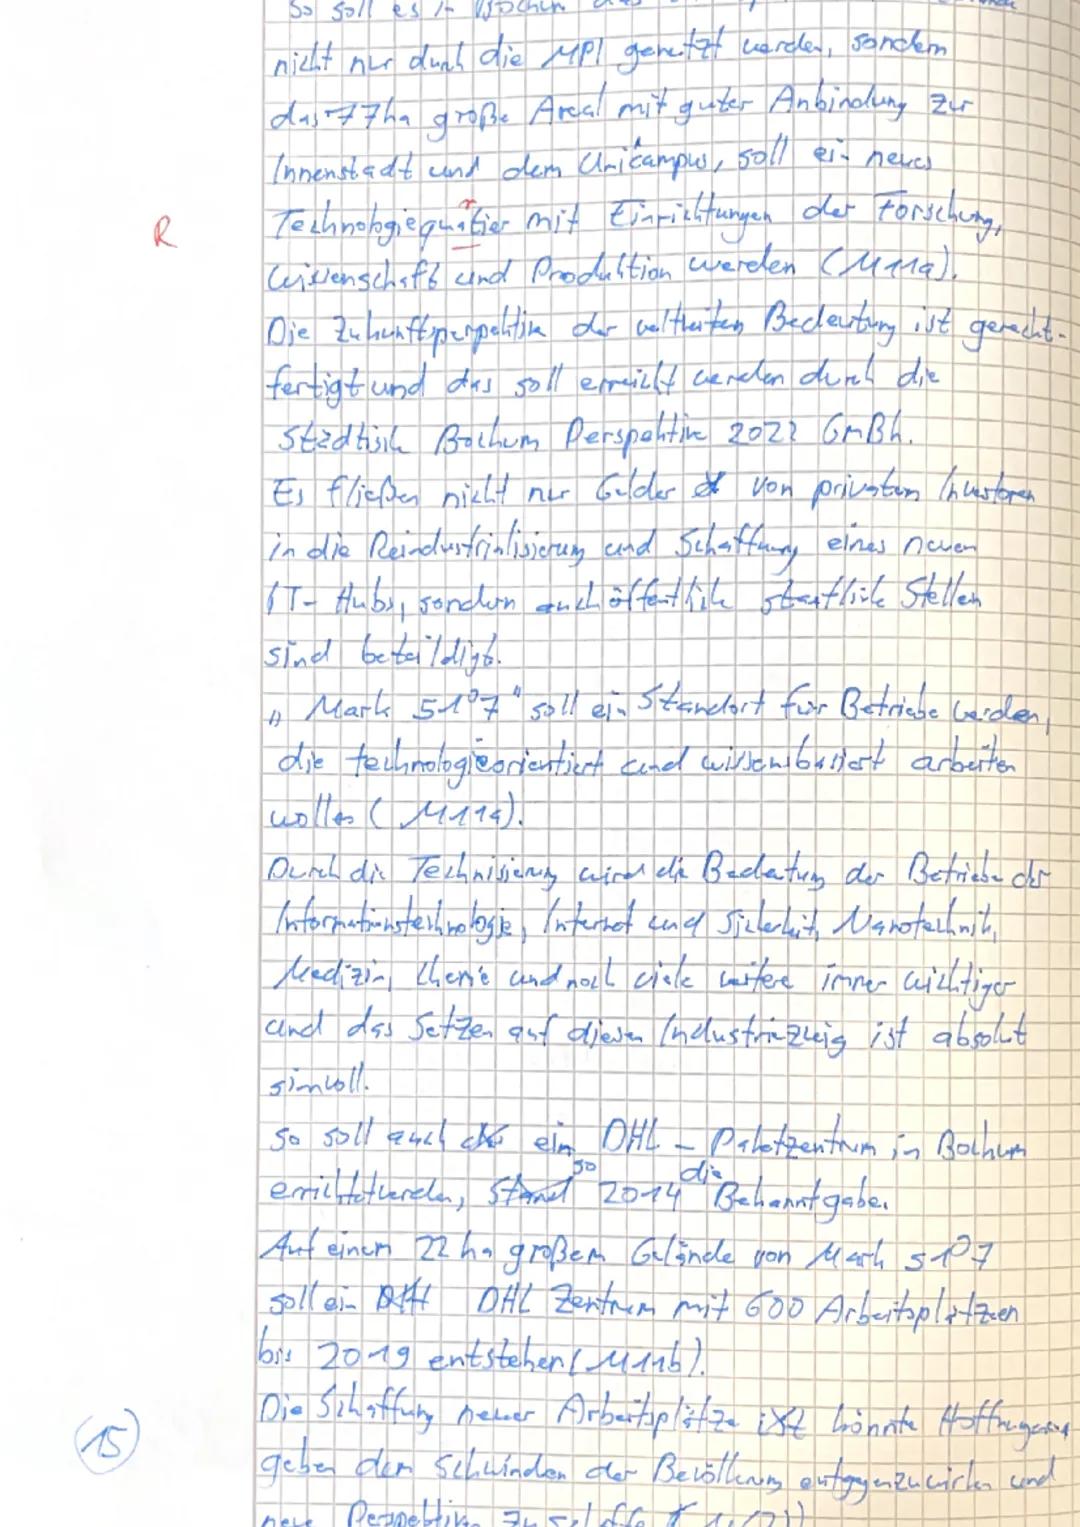 So soll es in Bochum
nicht nur durch die MPI genutzt werden, sondern
das 77ha große Areal mit guter Anbindung zur
Innenstadt und dem Unicampus, soll ein neues
R Technologiequatier mit Einrichtungen der Forschung,
r
Wissenschaft und Produktion werden (M11a).
Die Zukunftsperspektive der weltweiten Bedeutung ist gerecht-
fertigt und das soll erreicht werden durch die
städtisch Bochum Perspektive 2022 GmBh.
Es fließen nicht nur Gelder von privaten Investoren
in die Reindustrialisierung und Schaffung eines neuen
IT-Hubs, sondern auch öffentlich staatliche Stellen
sind beteildigt.
"Mark 51°7" soll ein Standort für Betriebe werden,
die technologieorientiert und wissensbasiert arbeiten
wollen (M11a).
Durch die Technisierung wird die Bedeutung der Betriebe der
Informationstechnologie, Internet und Sicherheit, Nanotechnik,
Medizin, Chemie und noch viele weitere immer wichtiger
und das Setzen auf diesen Industriezweig ist absolut
sinnvoll.
so soll auch ein DHL - Paketzentrum in Bochum
so die
errichtet werden, 2014 Bekanntgabe.
Auf einem 22 ha großem Gelände von Mark 51°7
soll ein DHL Zentrum mit 600 Arbeitsplätzen
bis 2019 entstehen (M11b).
Die Schaffung neuer Arbeitsplätze könnte
15 geben dem Schwinden der Bevölkerung entgegenzuwirken und
neue Perspektiven zu